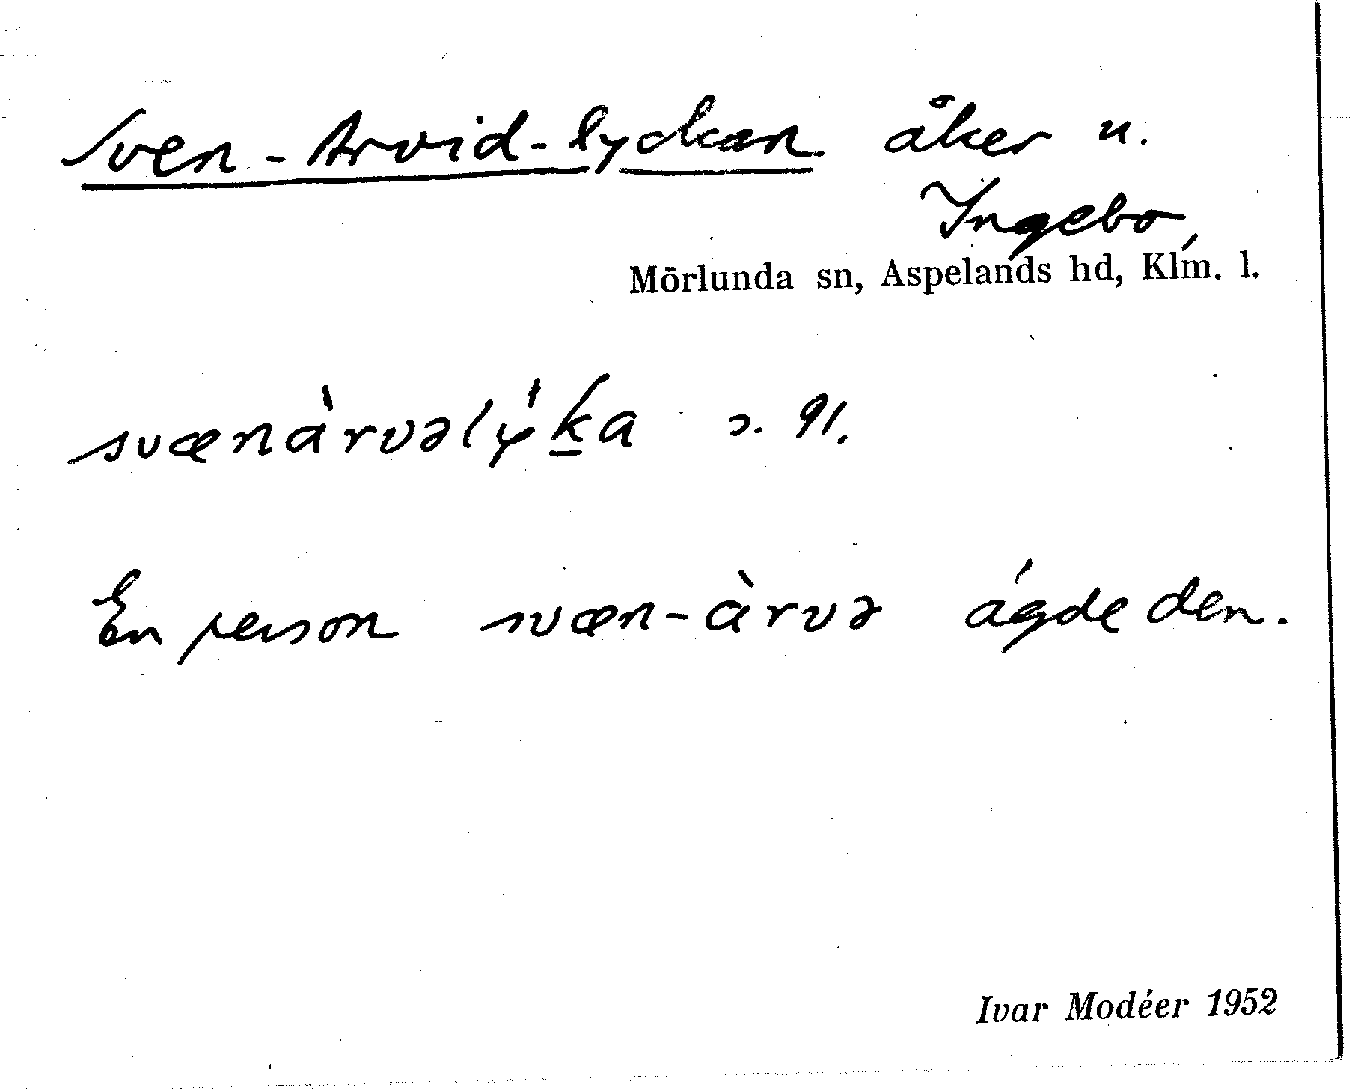 Sven-Arvid-lyckan åker u.
Ingebo,
Mörlunda sn, Aspelands hd, Klm. l.
svænàrvəlýka ɔ. 91.
En person svæn-àrvə ägde den.
Ivar Modéer 1952